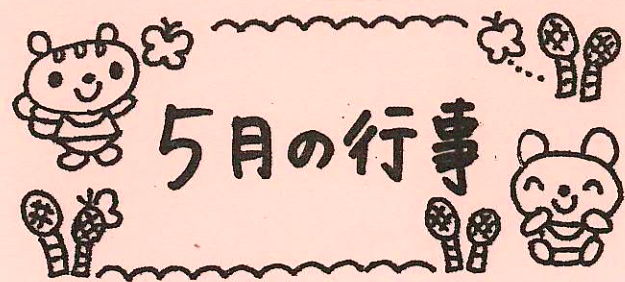 5月の行事